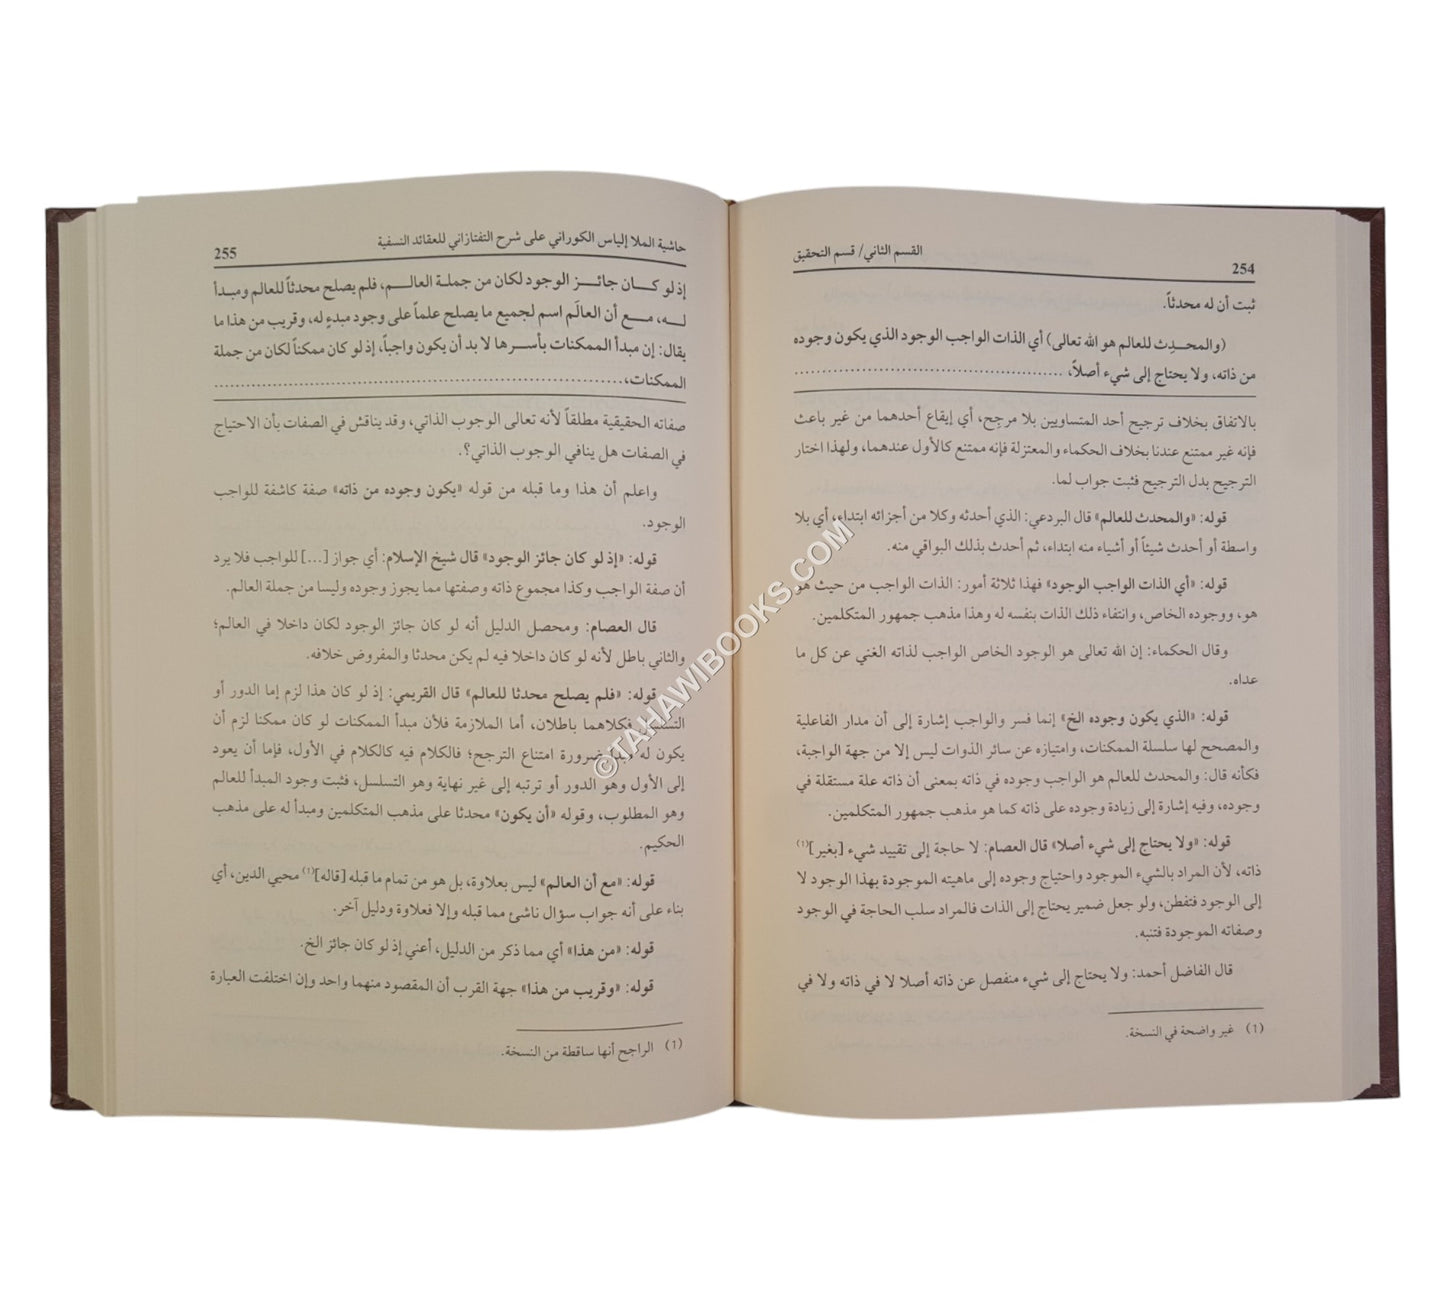 254
القسم الثاني/ قسم التحقيق
ثبت أن له محدثاً.
(والمحـــدِث للعالم هو الله تعالى) أي الذات الواجب الوجود الذي يكون وجوده
من ذاته، ولا يحتاج إلى شيء أصلاً، ....................................................
بالاتفاق بخلاف ترجيح أحد المتساويين بلا مرجح، أي إيقاع أحدهما من غير باعث
فإنه غير ممتنع عندنا بخلاف الحكماء والمعتزلة فإنه ممتنع كالأول عندهما، ولهذا اختار
الترجيح بدل الترجيح فثبت جواب لما.
قوله: «والمحدث للعالم» قال البردعي: الذي أحدثه وكلا من أجزائه ابتداء، أي بلا
واسطة أو أحدث شيئاً أو أشياء منه ابتداء، ثم أحدث بذلك البواقي منه.
قوله: «أي الذات الواجب الوجود» فهذا ثلاثة أمور: الذات الواجب من حيث هو
هو، ووجوده الخاص، وانتفاء ذلك الذات بنفسه له وهذا مذهب جمهور المتكلمين.
وقال الحكماء: إن الله تعالى هو الوجود الخاص الواجب لذاته الغني عن كل ما
عداه.
قوله: «الذي يكون وجوده الخ» إنما فسر والواجب إشارة إلى أن مدار الفاعلية
والمصحح لها سلسلة الممكنات، وامتيازه عن سائر الذوات ليس إلا من جهة الواجبة،
فكأنه قال: والمحدث للعالم هو الواجب وجوده في ذاته بمعنى أن ذاته علة مستقلة في
وجوده، وفيه إشارة إلى زيادة وجوده على ذاته كما هو مذهب جمهور المتكلمين.
قوله: «ولا يحتاج إلى شيء أصلا» قال العصام: لا حاجة إلى تقييد شيء [بغير](1)
ذاته، لأن المراد بالشيء الموجود واحتياج وجوده إلى ماهيته الموجودة بهذا الوجود لا
إلى الوجود فتفطن، ولو جعل ضمير يحتاج إلى الذات فالمراد سلب الحاجة في الوجود
وصفاته الموجودة فتنبه.
قال الفاضل أحمد: ولا يحتاج إلى شيء منفصل عن ذاته أصلا لا في ذاته ولا في
(1) غير واضحة في النسخة.
حاشية الملا إلياس الكوراني على شرح التفتازاني للعقائد النسفية
255
إذ لو كـــان جائـــز الوجود لكان من جملـة العالـــم، فلم يصلح محدثاً للعالم ومبدأ
لـــه، مـــع أن العالَم اسم لجميع ما يصلح علماً على وجود مبدءٍ له، وقريب من هذا ما
يقال: إن مبدأ الممكنات بأسرها لا بد أن يكون واجباً، إذ لو كان ممكناً لكان من جملة
الممكنات، ..............................................................................
صفاته الحقيقية مطلقاً لأنه تعالى الوجوب الذاتي، وقد يناقش في الصفات بأن الاحتياج
في الصفات هل ينافي الوجوب الذاتي؟.
واعلم أن هذا وما قبله من قوله «يكون وجوده من ذاته» صفة كاشفة للواجب
الوجود.
قوله: «إذ لو كان جائز الوجود» قال شيخ الإسلام: أي جواز [...] للواجب فلا يرد
أن صفة الواجب وكذا مجموع ذاته وصفتها مما يجوز وجوده وليسا من جملة العالم.
قال العصام: ومحصل الدليل أنه لو كان جائز الوجود لكان داخلا في العالم؛
والثاني باطل لأنه لو كان داخلا فيه لم يكن محدثا والمفروض خلافه.
قوله: «فلم يصلح محدثا للعالم» قال القريمي: إذ لو كان هذا لزم إما الدور أو
التسلسل فكلاهما باطلان، أما الملازمة فلأن مبدأ الممكنات لو كان ممكنا لزم أن
يكون له مبدأ ضرورة امتناع الترجح؛ فالكلام فيه كالكلام في الأول، فإما أن يعود
إلى الأول وهو الدور أو ترتبه إلى غير نهاية وهو التسلسل، فثبت وجود المبدأ للعالم
وهو المطلوب، وقوله «أن يكون» محدثا على مذهب المتكلمين ومبدأ له على مذهب
الحكيم.
قوله: «مع أن العالم» ليس بعلاوة، بل هو من تمام ما قبله [قاله](1) محيي الدين، أي
بناء على أنه جواب سؤال ناشئ مما قبله وإلا فعلاوة ودليل آخر.
قوله: «من هذا» أي مما ذكر من الدليل، أعني إذ لو كان جائز الخ.
قوله: «وقريب من هذا» جهة القرب أن المقصود منهما واحد وإن اختلفت العبارة
(1) الراجح أنها ساقطة من النسخة.
©TAHAWIBOOKS.COM